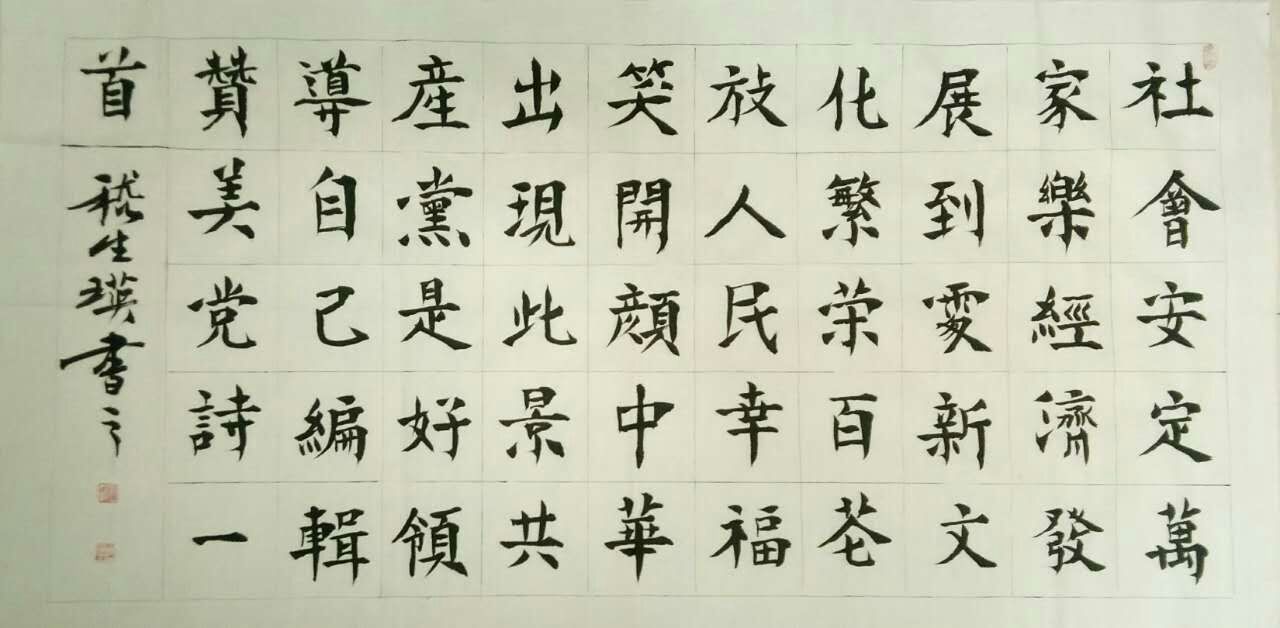 社會安定萬
家樂經濟發
展到處新文
化繁荣百花
放人民幸福
笑開顔中華
出現此景共
産黨是好領
導自己編輯
贊美党詩一
首 嵇生瑛書之